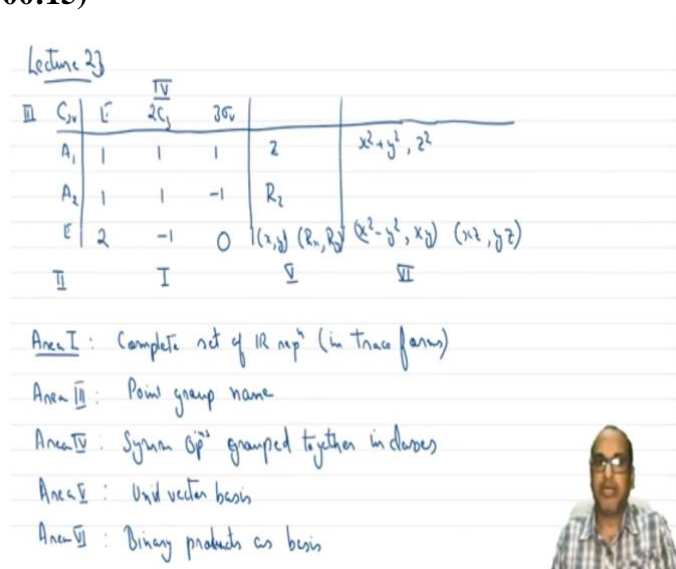 00:15)
Lecture 23
IV
III C3v E 2C3 3σv
A1 1 1 1 z x²+y², z²
A2 1 1 -1 Rz
E 2 -1 0 (x,y) (Rx,Ry) (x²-y², xy) (xz, yz)
II I V VI
Area I : Complete set of IR repⁿ (in trace form)
Area III : Point group name
Area IV : Symm opⁿˢ grouped together in classes
Area V : Unit vector basis
Area VI : Binary products as basis